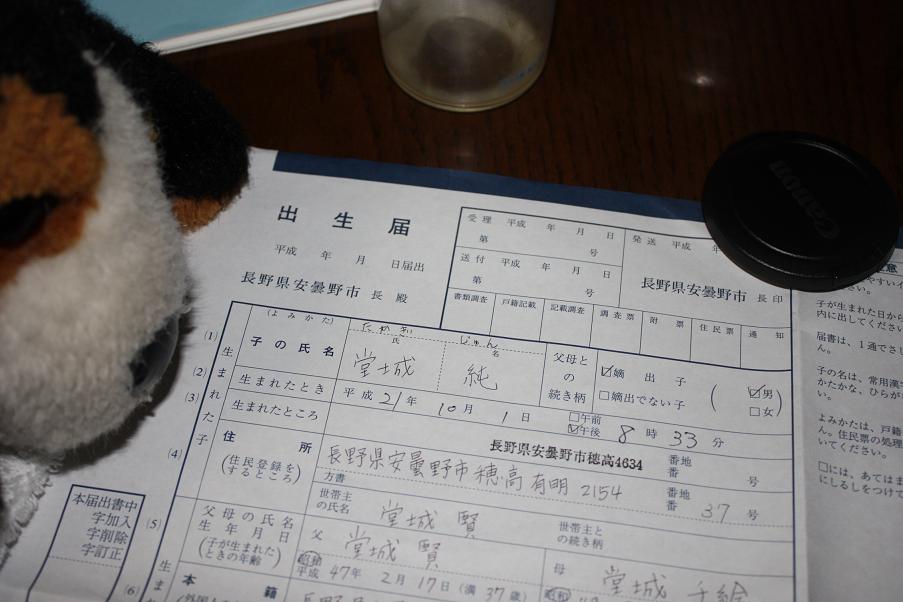 Canon
出生届
平成 年 月 日届出
長野県安曇野市 長 殿
受理 平成 年 月 日
第 号
送付 平成 年 月 日
第 号
発送 平成 年
長野県安曇野市 長印
書類調査 戸籍記載 記載調査 調査票 附票 住民票 通知
(1)
生まれた子
(よみかた)
子の氏名
氏 名
じゅん
堂城 純
父母との続き柄
☑嫡出子
□嫡出でない子
☑男
□女
(2)
生まれたとき
平成 21年 10月 1日
□午前
☑午後
8時 33分
(3)
生まれたところ
長野県安曇野市穂高4634
番地
番 号
(4)
住所
(住民登録をするところ)
長野県安曇野市穂高有明 2154
番地
番 37 号
方書
世帯主の氏名
堂城 賢
世帯主との続き柄
(5)
父母の氏名
生年月日
(子が生まれたときの年齢)
父 堂城 賢
昭和
平成 47年 2月 17日(満 37歳)
母 堂城 千絵
昭和
(6)
本籍
本届出書中
字加入
字削除
字訂正
子が生まれた日から
内に出してください
届書は、1通でさし
ん。
子の名は、常用漢字
かたかな、ひらが
よみかたは、戸籍
ん。住民票の処理
いてください。
□には、あてはま
にしるしをつけて